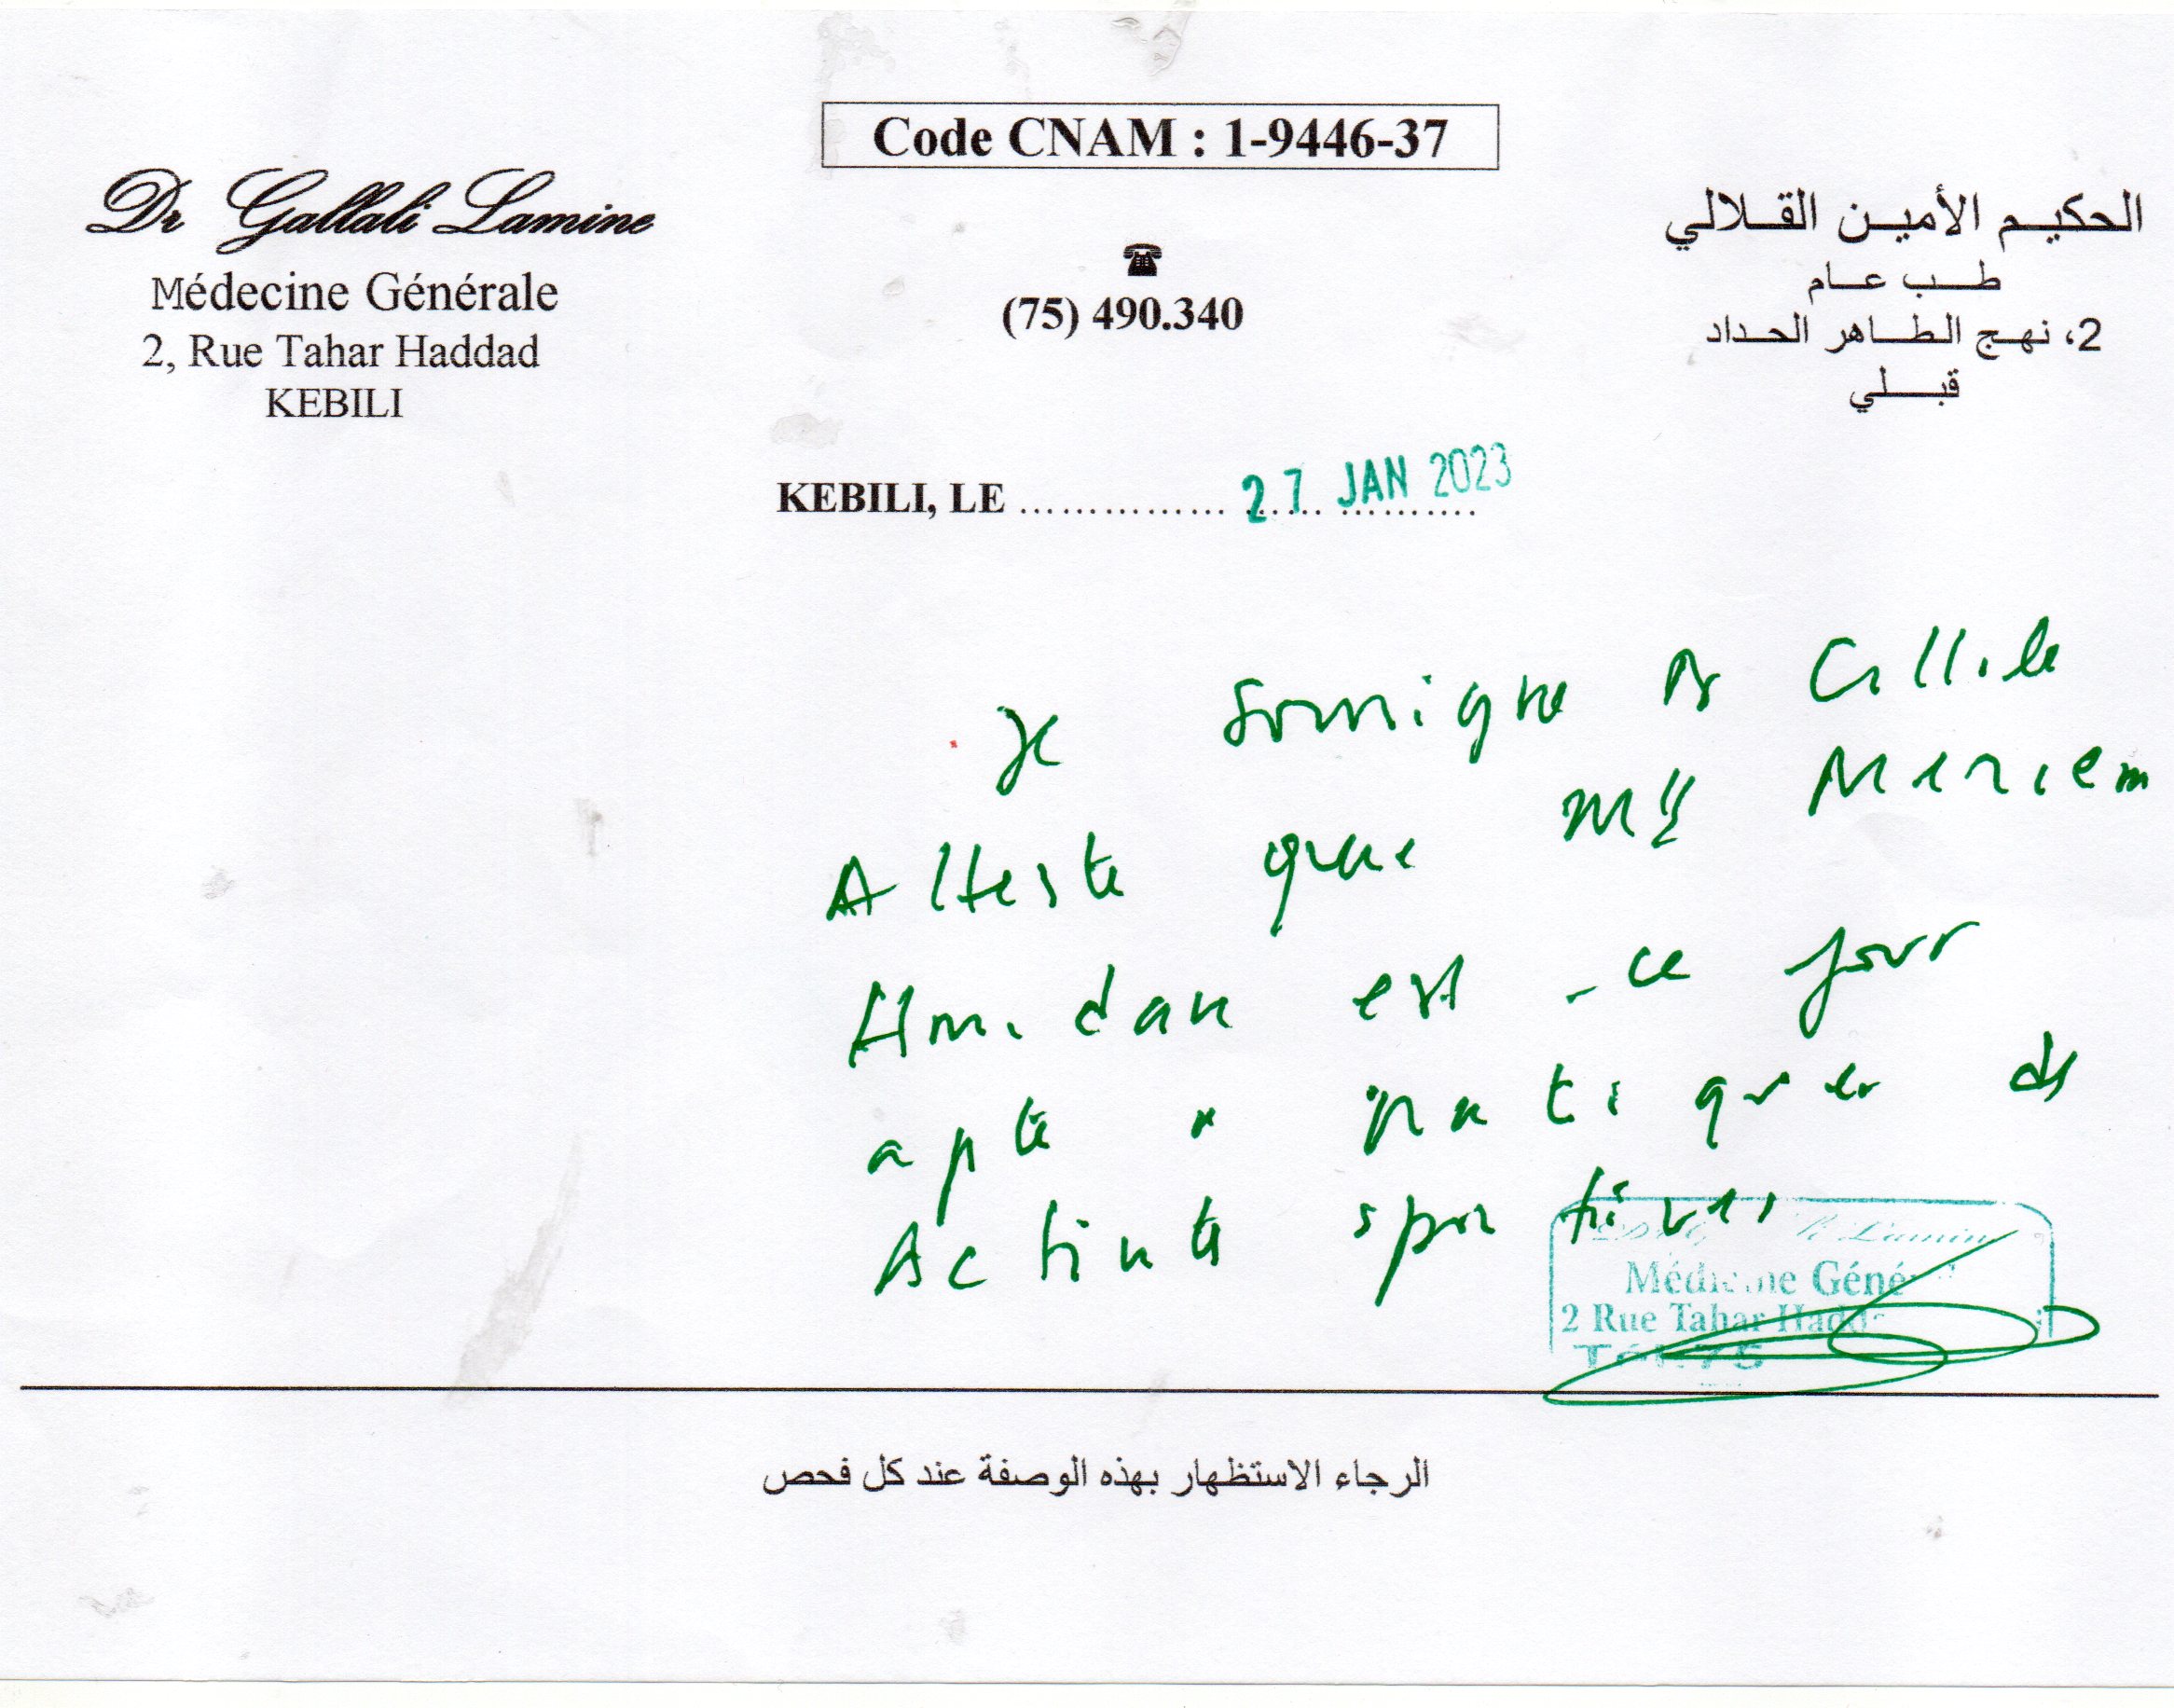 Code CNAM : 1-9446-37
Dr Gallali Lamine
Médecine Générale
2, Rue Tahar Haddad
KEBILI
☎
(75) 490.340
الحكيم الأمين القلالي
طب عام
2، نهج الطاهر الحداد
قبلي
KEBILI, LE ........................ 27 JAN 2023
Je soussigné Dr
Atteste que Mlle Meriem
est ce jour
apte a pratiquer des
Activités sportives
Lamine
Médecine Géné
2 Rue Tahar Hadd
Tél: 75
الرجاء الاستظهار بهذه الوصفة عند كل فحص